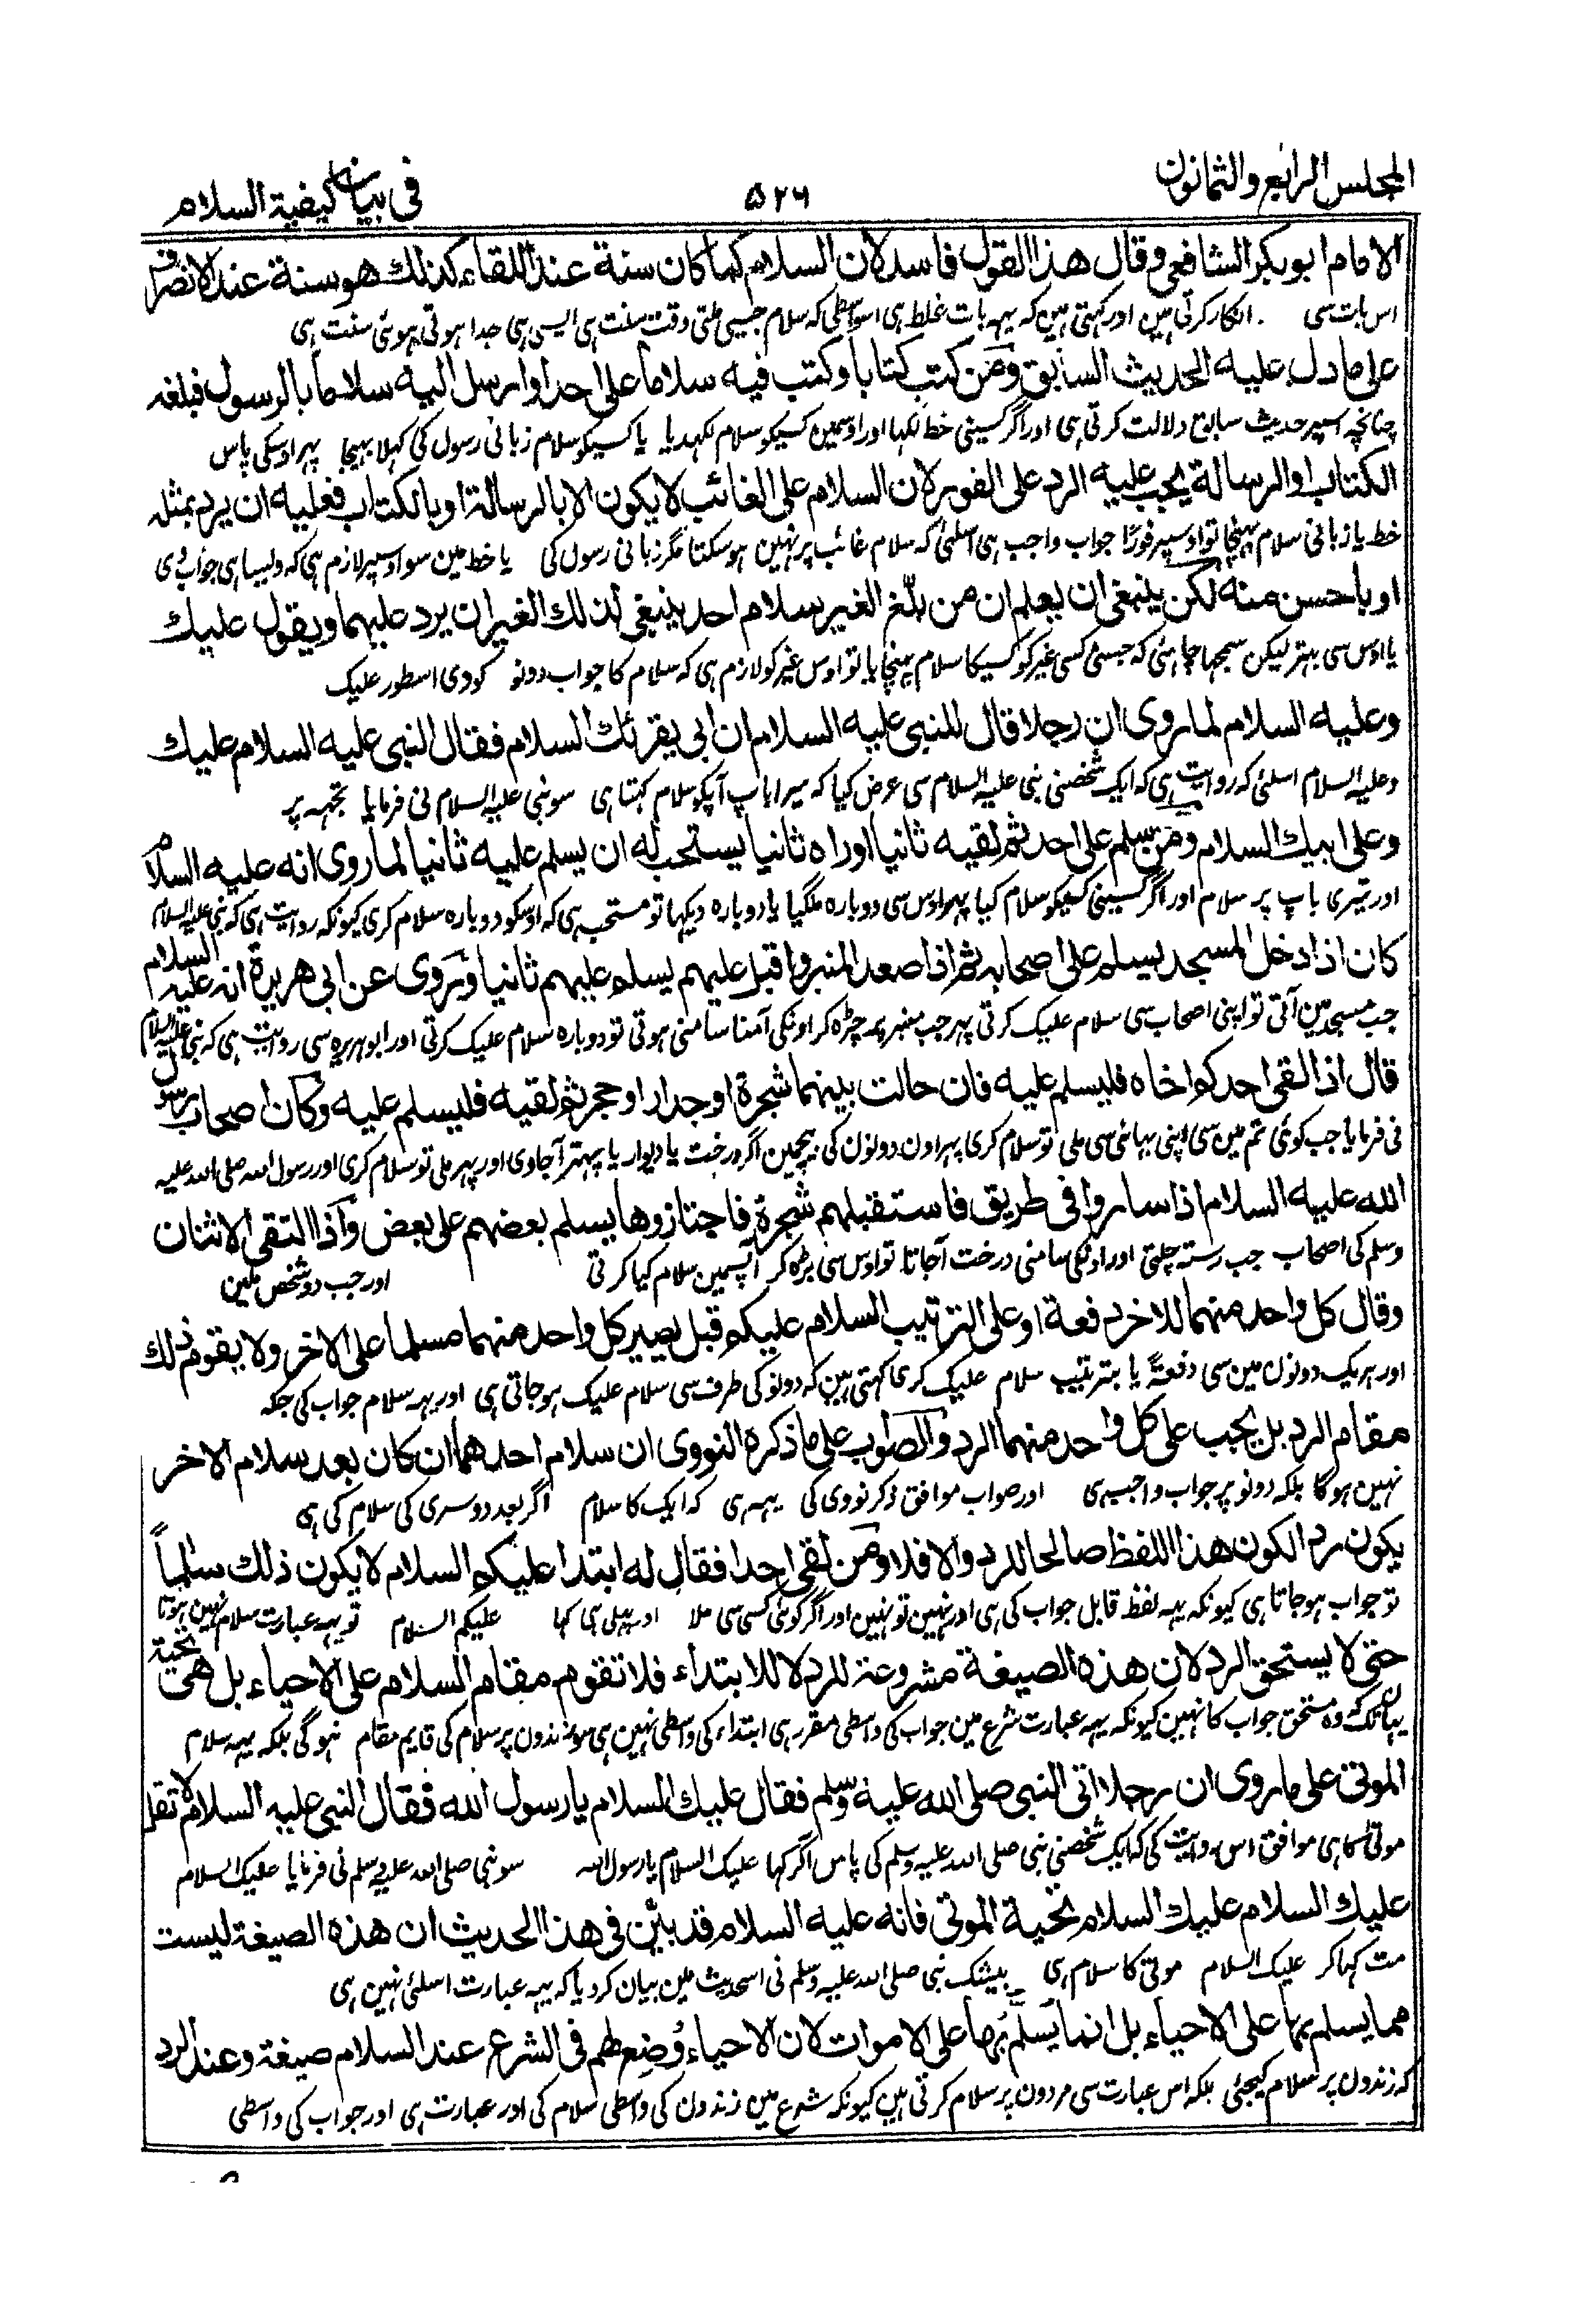 المجلس الرابع والثمانون
۵۲۶
فی بیان کیفیة السلام
الامام ابو بکر الشافعی وقال هذا القول فاسد لان السلام کما کان سنة عند اللقاء کذلك هو سنة عند الانصراف
اس بات سی انکار کرتی ہین اور کہتی ہین کہ یہہ بات غلط ہی اسواسطی کہ سلام جیسی ملتی وقت سنت ہی ایسی ہی جدا ہوتی ہوئی سنت ہی
علی ما دل علیه الحدیث السابق ومن کتب کتابا وکتب فیه سلاما علی احد او ارسل الیه سلاما بالرسول فبلغه
چنانچہ اسپر حدیث سابق دلالت کرتی ہی اور اگر کسینی خط لکھا اور اوسمین کسیکو سلام لکھدیا یا کسیکو سلام زبانی رسول کی کہلا بہیجا پہر اوسکی پاس
الکتاب او الرسالة یجب علیه الرد علی الفور لان السلام علی الغائب لا یکون الا بالرسالة او بالکتاب فعلیه ان یرد بمثله
خط یا زبانی سلام پہنچا تو اوسپر فورًا جواب واجب ہی اسلئی کہ سلام غائب پر نہین ہو سکتا مگر زبانی رسول کی یا خط مین سو اوسپر لازم ہی کہ ویسا ہی جواب دی
او باحسن منه لکن ینبغی ان یعلم ان من بلّغ الغیر سلام احد ینبغی لذلك الغیر ان یرد علیهما ویقول علیك
یا اوس سی بہتر لیکن سمجہا چاہئی کہ جسنی کسی غیر کو کسیکا سلام پہنچایا تو اوس غیر کو لازم ہی کہ سلام کا جواب دونو کو دی اسطور علیک
وعلیه السلام لما روی ان رجلا قال للنبی علیه السلام ان ابی یقرئك السلام فقال النبی علیه السلام علیك
وعلیہ السلام اسلئی کہ روایت ہی کہ ایک شخصنی نبی علیہ السلام سی عرض کیا کہ میرا باپ آپکو سلام کہتا ہی سو نبی علیہ السلام نی فرمایا تجہہ پر
وعلی ابیك السلام ومن سلم علی احد ثم لقیه ثانیا او راه ثانیا یستحب له ان یسلم علیه ثانیا لما روی انه علیه السلام
اور تیری باپ پر سلام اور اگر کسینی کسیکو سلام کیا پہر اوس سی دوبارہ ملگیا یا دوبارہ دیکہا تو مستحب ہی کہ اوسکو دوبارہ سلام کری کیونکہ روایت ہی کہ نبی علیہ السلام
کان اذا دخل المسجد یسلم علی اصحابه ثم اذا صعد المنبر واقبل علیهم یسلم علیهم ثانیا وروی عن ابی هریرة انه علیه السلام
جب مسجد مین آتی تو اپنی اصحاب سی سلام علیک کرتی پہر جب منبر پر چڑہ کر اونکی آمنا سامنی ہوتی تو دوبارہ سلام علیک کرتی اور ابو ہریرہ سی روایت ہی کہ نبی علیہ السلام
قال اذا لقی احدکم اخاه فلیسلم علیه فان حالت بینهما شجرة او جدار او حجر ثم لقیه فلیسلم علیه وکان اصحاب رسول
نی فرمایا جب کوئی تم مین سی اپنی بہائی سی ملی تو سلام کری پہر اون دونون کی بیچمین اگر درخت یا دیوار یا پہتر آجاوی اور پہر ملی تو سلام کری اور رسول اللہ صلی اللہ علیہ
الله علیه السلام اذا ساروا فی طریق فاستقبلهم شجرة فاجتازوها یسلم بعضهم علی بعض واذا التقی الاثنان
وسلم کی اصحاب جب رستہ چلتی اور اونکی سامنی درخت آجاتا تو اوس سی بڑہ کر آپسمین سلام کیا کرتی اور جب دو شخص ملین
وقال کل واحد منهما للاخر دفعة او علی الترتیب السلام علیکم قبل یصیر کل واحد منهما مسلما علی الاخر ولا یقوم ذلك
اور ہر یک دونون مین سی دفعۃً یا بترتیب سلام علیک کری کہتی ہین کہ دونو کی طرف سی سلام علیک ہو جاتی ہی اور یہہ سلام جواب کی جگہ
مقام الرد بل یجب علی کل واحد منهما الرد والصواب علی ما ذکره النووی ان سلام احدهما ان کان بعد سلام الاخر
نہین ہوگا بلکہ دونو پر جواب واجب ہی اور صواب موافق ذکر نووی کی یہہ ہی کہ ایک کا سلام اگر بعد دوسری کی سلام کی ہی
یکون ردا لکون هذا اللفظ صالحا للرد والا فلا ومن لقی احدا فقال له ابتدا علیکم السلام لا یکون ذلك سلاماً
تو جواب ہو جاتا ہی کیونکہ یہہ لفظ قابل جواب کی ہی اور نہین تو نہین اور اگر کوئی کسی سی ملا اور پہلی ہی کہا علیکم السلام تو یہہ عبارت سلام نہین ہوتا
حتی لا یستحق الرد لان هذه الصیغة مشروعة للرد لا للابتداء فلا تقوم مقام السلام علی الاحیاء بل هی تحیة
یہانتک کہ وہ مستحق جواب کا نہین کیونکہ یہہ عبارت شرع مین جواب کی واسطی مقرر ہی ابتداء کی واسطی نہین ہی سو زندون پر سلام کی قایم مقام نہوگی بلکہ یہہ سلام
الموتی علی ما روی ان رجلا اتی النبی صلی الله علیه وسلم فقال علیك السلام یا رسول الله فقال النبی علیه السلام لا تقل
موتی کا ہی موافق اس روایت کی کہ ایک شخصنی نبی صلی اللہ علیہ وسلم کی پاس آکر کہا علیک السلام یا رسول اللہ سو نبی صلی اللہ علیہ وسلم نی فرمایا علیک السلام
علیك السلام علیك السلام تحیة الموتی فانه علیه السلام قد بیّن فی هذا الحدیث ان هذه الصیغة لیست
مت کہا کر علیک السلام موتی کا سلام ہی بیشک نبی صلی اللہ علیہ وسلم نی اسحدیث مین بیان کر دیا کہ یہہ عبارت اسلئی نہین ہی
مما یسلم بها علی الاحیاء بل انما یسلّم بها علی الاموات لان الاحیاء وُضِع لهم فی الشرع عند السلام صیغة وعند الرد
کہ زندون پر سلام کیجئی بلکہ اس عبارت سی مردون پر سلام کرتی ہین کیونکہ شرع مین زندون کی واسطی سلام کی اور عبارت ہی اور جواب کی واسطی